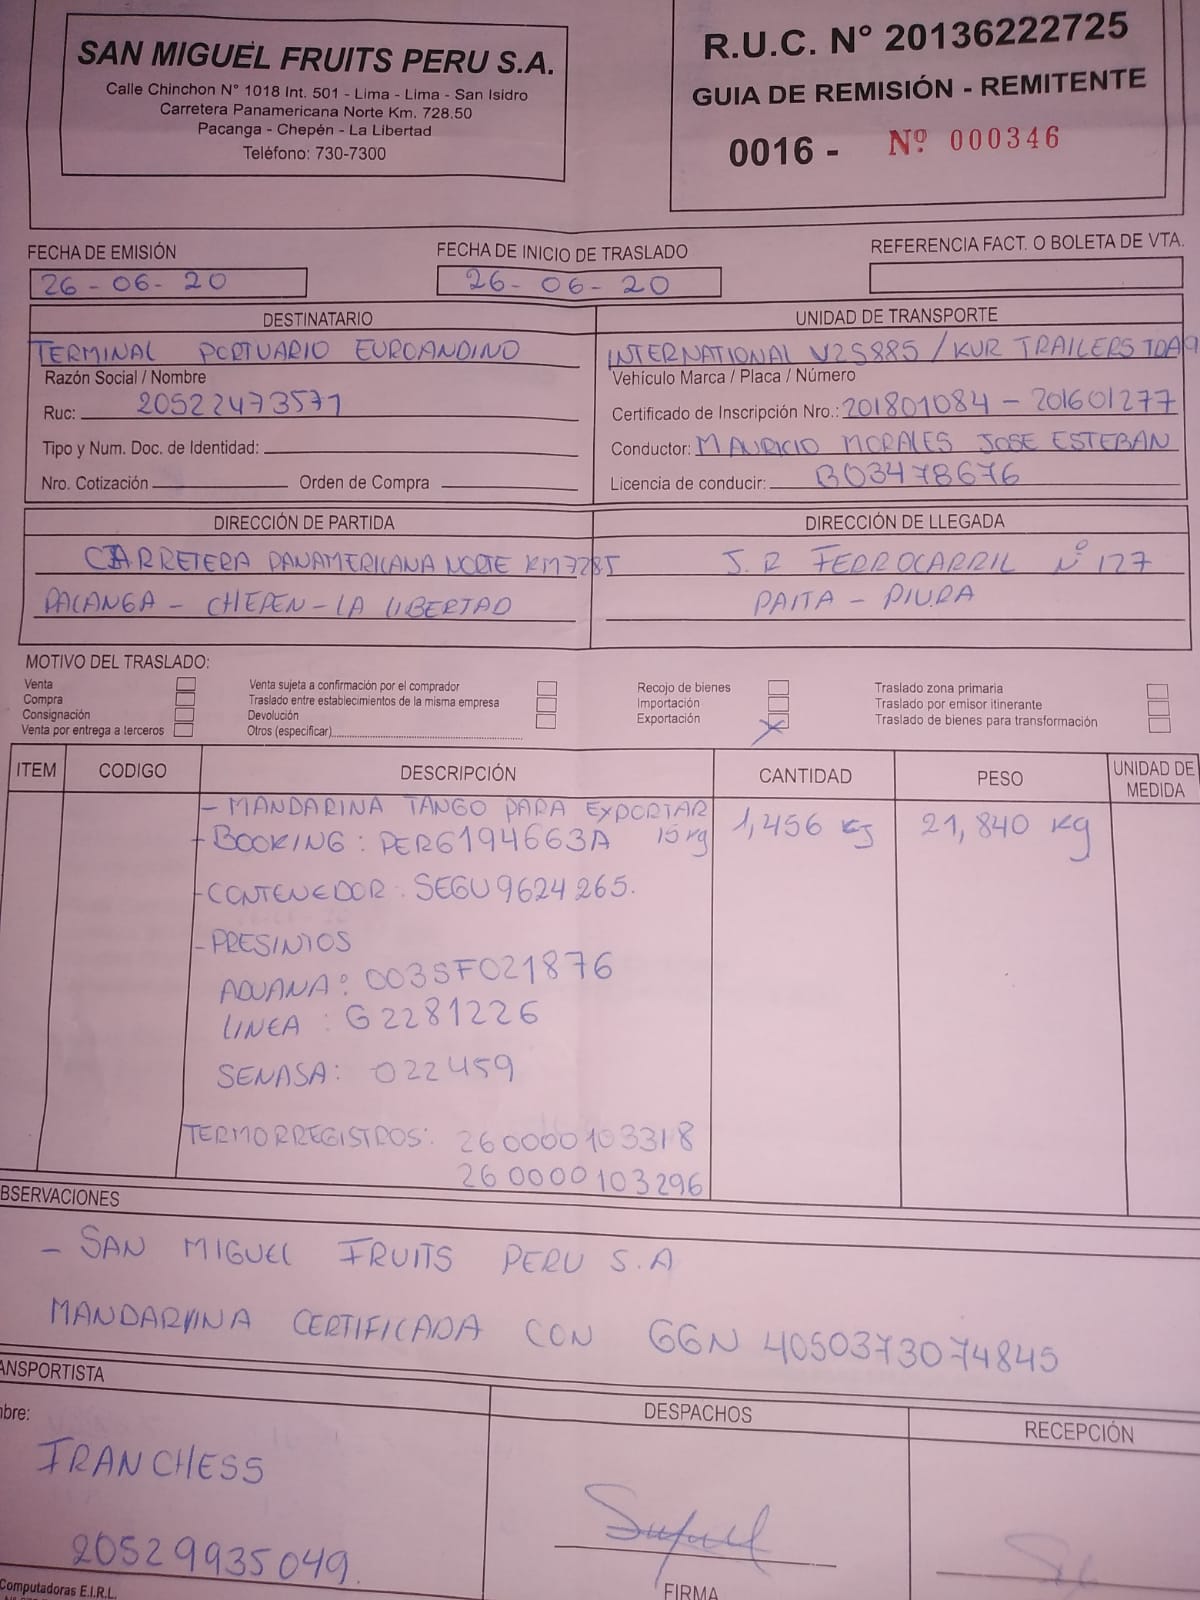 SAN MIGUEL FRUITS PERU S.A.
Calle Chinchon N° 1018 Int. 501 - Lima - Lima - San Isidro
Carretera Panamericana Norte Km. 728.50
Pacanga - Chepén - La Libertad
Teléfono: 730-7300
R.U.C. N° 20136222725
GUIA DE REMISIÓN - REMITENTE
0016 - Nº 000346
FECHA DE EMISIÓN
26-06-20
FECHA DE INICIO DE TRASLADO
26-06-20
REFERENCIA FACT. O BOLETA DE VTA.
DESTINATARIO
TERMINAL PORTUARIO EUROANDINO
Razón Social / Nombre
Ruc: 20522473571
Tipo y Num. Doc. de Identidad:
Nro. Cotización Orden de Compra
UNIDAD DE TRANSPORTE
INTERNATIONAL V2S885 / KUR TRAILERS
Vehículo Marca / Placa / Número
Certificado de Inscripción Nro.: 201801084 - 201601277
Conductor: MAURICIO MORALES JOSE ESTEBAN
Licencia de conducir: B03478676
DIRECCIÓN DE PARTIDA
CARRETERA PANAMERICANA NORTE KM7285
PACANGA - CHEPEN - LA LIBERTAD
DIRECCIÓN DE LLEGADA
J.R FERROCARRIL N° 127
PAITA - PIURA
MOTIVO DEL TRASLADO:
Venta
Compra
Consignación
Venta por entrega a terceros
Venta sujeta a confirmación por el comprador
Traslado entre establecimientos de la misma empresa
Devolución
Otros (especificar)
Recojo de bienes
Importación
Exportación X
Traslado zona primaria
Traslado por emisor itinerante
Traslado de bienes para transformación
ITEM CODIGO DESCRIPCIÓN CANTIDAD PESO UNIDAD DE MEDIDA
- MANDARINA TANGO PARA EXPORTAR
- BOOKING: PER6194663A 15 kg 1,456 kg 21,840 kg
- CONTENEDOR: SEGU9624265.
- PRESINTOS
ADUANA: 003SF021876
LINEA : G2281226
SENASA: 022459
TERMORREGISTROS: 260000103318
260000103296
BSERVACIONES
- SAN MIGUEL FRUITS PERU S.A
MANDARINA CERTIFICADA CON GGN 4050373074845
ANSPORTISTA
mbre:
TRANCHESS
20529935049.
Computadoras E.I.R.L.
DESPACHOS
FIRMA
RECEPCIÓN